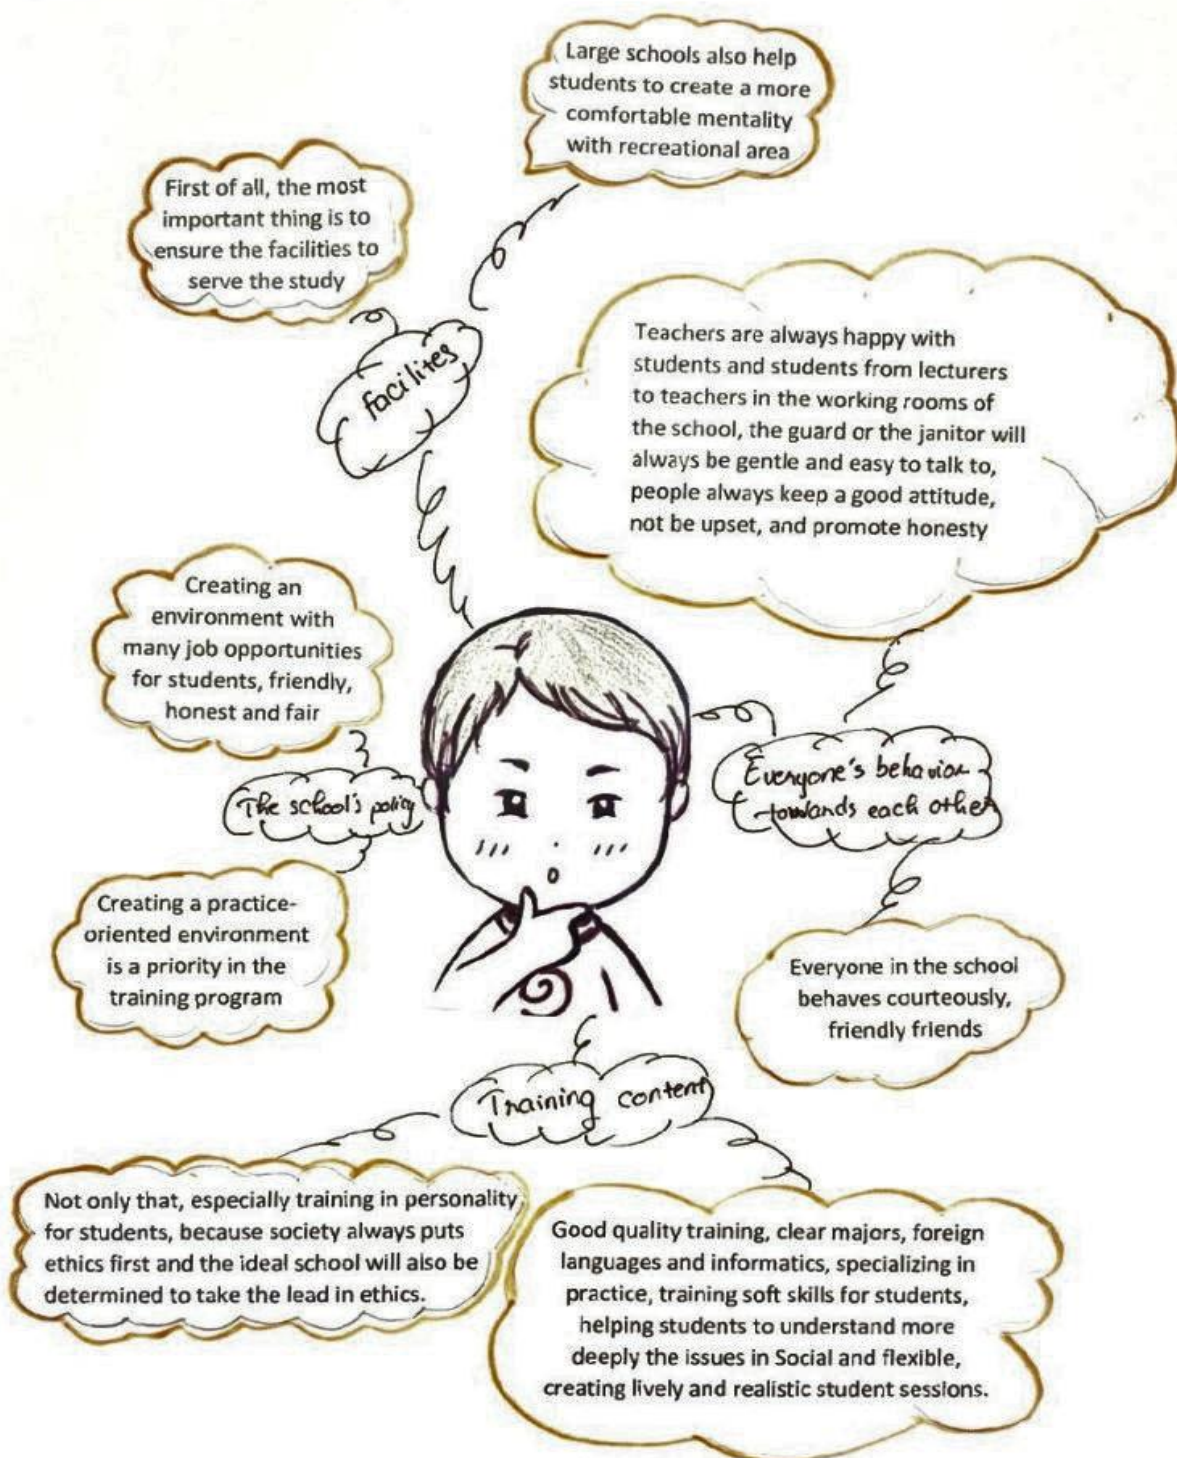 Large schools also help
students to create a more
comfortable mentality
with recreational area
First of all, the most
important thing is to
ensure the facilities to
serve the study
facilites
Teachers are always happy with
students and students from lecturers
to teachers in the working rooms of
the school, the guard or the janitor will
always be gentle and easy to talk to,
people always keep a good attitude,
not be upset, and promote honesty
Creating an
environment with
many job opportunities
for students, friendly,
honest and fair
The school's policy
Everyone's behavior
towards each other
Creating a practice-
oriented environment
is a priority in the
training program
Everyone in the school
behaves courteously,
friendly friends
Training content
Not only that, especially training in personality
for students, because society always puts
ethics first and the ideal school will also be
determined to take the lead in ethics.
Good quality training, clear majors, foreign
languages and informatics, specializing in
practice, training soft skills for students,
helping students to understand more
deeply the issues in Social and flexible,
creating lively and realistic student sessions.